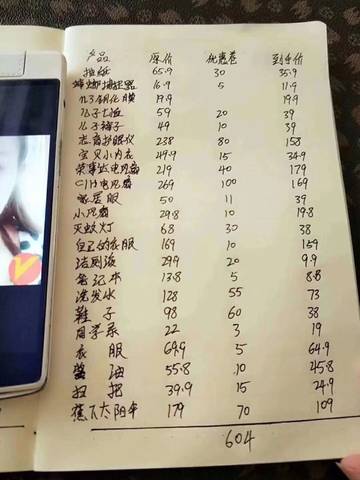 产品 原价 优惠卷 到手价
拉姐 65.9 30 35.9
蟑螂捕捉器 16.9 5 11.9
钢化膜 19.9 19.9
儿子七恤 59 20 39
儿子裤子 49 10 39
护眼仪 238 80 158
宝贝小内衣 49.9 15 34.9
荣事达电风扇 219 40 179
电风扇 269 100 169
家居服 50 11 39
小风扇 29.8 10 19.8
灭蚊灯 68 30 38
自己的衣服 169 10 159
洁厕液 29.9 20 9.9
笔记本 13.8 5 8.8
洗发水 128 55 73
鞋子 98 60 38
22 3 19
衣服 69.9 5 64.9
酱油 55.8 10 45.8
扫把 39.9 15 24.9
蕉下太阳伞 179 70 109
604